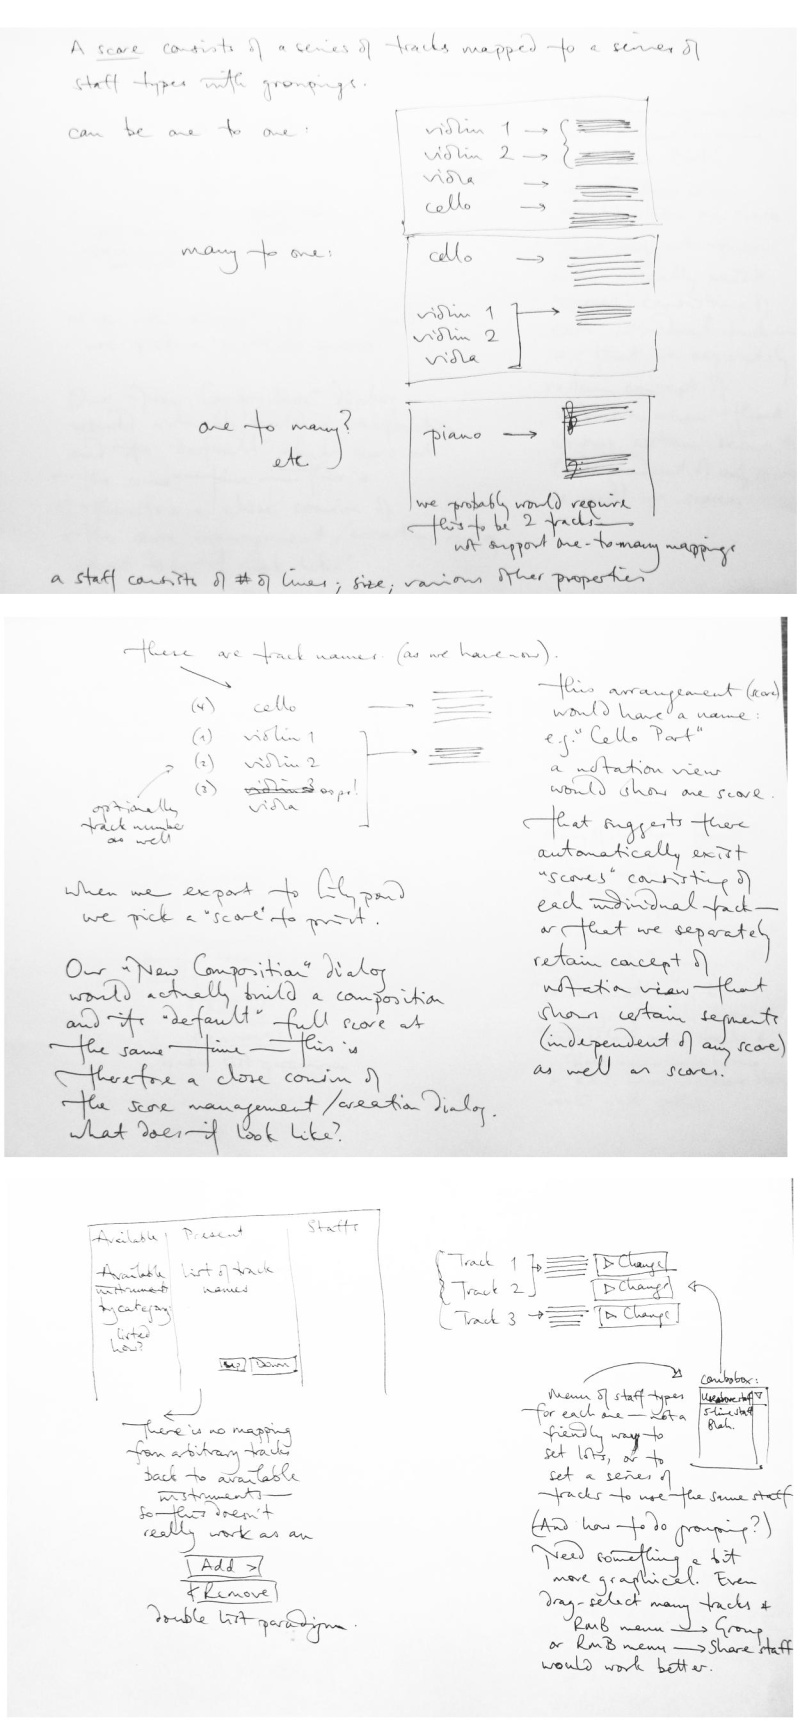 A score consists of a series of tracks mapped to a series of
staff types with groupings.
can be one to one:
violin 1 →
violin 2 →
viola →
cello →
many to one:
cello →
violin 1
violin 2
viola
one to many?
etc
piano →
we probably would require
this to be 2 tracks —
not support one-to-many mappings
a staff consists of # of lines; size; various other properties
these are track names (as we have now).
(4) cello
(1) violin 1
(2) violin 2
(3) violin 3 oops!
viola
optionally
track number
as well
this arrangement (score)
would have a name:
e.g. "Cello Part"
a notation view
would show one score.
That suggests there
automatically exist
"scores" consisting of
each individual track —
or that we separately
retain concept of
notation view that
shows certain segments
(independent of any score)
as well as scores?
When we export to Lilypond
we pick a "score" to print.
Our "New Composition" dialog
would actually build a composition
and its "default" full score at
the same time — this is
therefore a close cousin of
the score management/creation dialog.
What does it look like?
Available Present Staffs
Available
instruments
by category:
listed
how?
List of track
names
Up Down
There is no mapping
from arbitrary tracks
back to available
instruments —
so this doesn't
really work as an
Add >
< Remove
double list paradigm.
Track 1 ▷ Change
Track 2 ▷ Change
Track 3 → ▷ Change
combobox:
Use above staff ▽
5 line staff
Blah.
Menu of staff types
for each one — not a
friendly way to
set lots, or to
set a series of
tracks to use the same staff
(And how to do grouping?)
Need something a bit
more graphical. Even
drag-select many tracks &
RMB menu → Group
or RMB menu → Share staff
would work better.